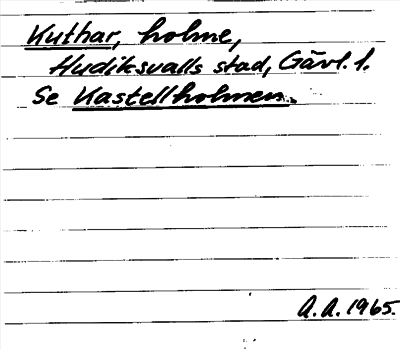 Kuthar, holme,
Hudiksvalls stad, Gävl. l.
Se Kastellholmen.
A.A. 1965.